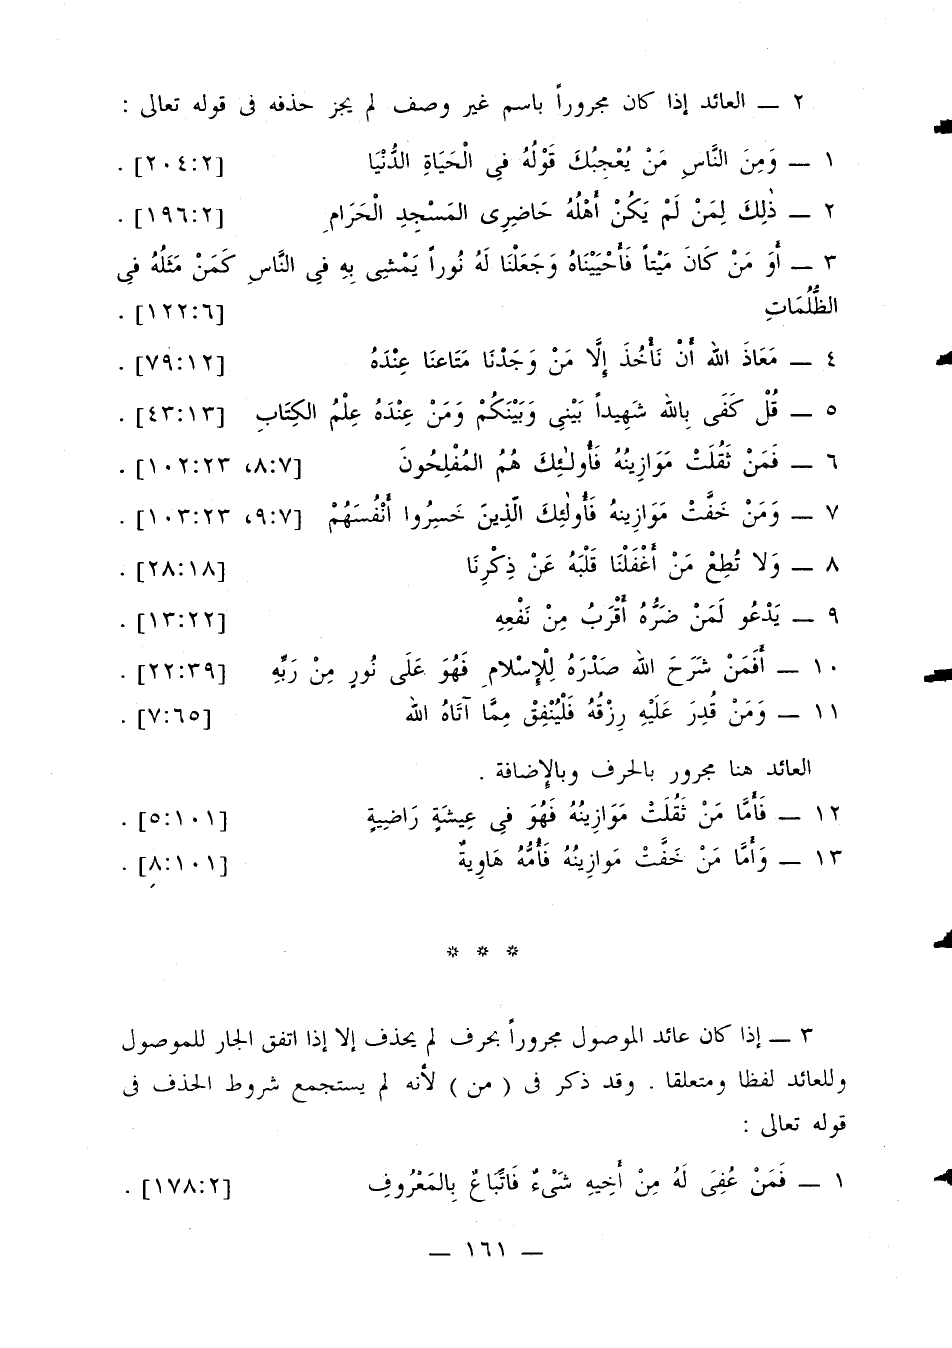 ٢ — العائد إذا كان مجروراً باسم غير وصف لم يجز حذفه فى قوله تعالى :
١ — وَمِنَ النَّاسِ مَنْ يُعْجِبُكَ قَوْلُهُ فِي الْحَيَاةِ الدُّنْيَا [٢:٢٠٤] .
٢ — ذٰلِكَ لِمَنْ لَمْ يَكُنْ أَهْلُهُ حَاضِرِى المَسْجِدِ الْحَرَامِ [٢:١٩٦] .
٣ — أَوَ مَنْ كَانَ مَيْتاً فَأَحْيَيْنَاهُ وَجَعَلْنَا لَهُ نُوراً يَمْشِي بِهِ فِي النَّاسِ كَمَنْ مَثَلُهُ فِي
الظُّلُمَاتِ [٦:١٢٢] .
٤ — مَعَاذَ اللهِ أَنْ نَأْخُذَ إِلَّا مَنْ وَجَدْنَا مَتَاعنَا عِنْدَهُ [١٢:٧٩] .
٥ — قُلْ كَفَى بِاللهِ شَهِيداً بَيْنِي وَبَيْنَكُمْ وَمَنْ عِنْدَهُ عِلْمُ الكِتَابِ [١٣:٤٣] .
٦ — فَمَنْ ثَقُلَتْ مَوَازِينُهُ فَأُولٰئِكَ هُمُ المُفْلِحُونَ [٧:٨، ٢٣:١٠٢] .
٧ — وَمَنْ خَفَّتْ مَوَازِينهُ فَأُولٰئِكَ الَّذِينَ خَسِرُوا أَنْفُسَهُمْ [٧:٩، ٢٣:١٠٣] .
٨ — وَلا تُطِعْ مَنْ أَغْفَلْنَا قَلْبَهُ عَنْ ذِكْرِنَا [١٨:٢٨] .
٩ — يَدْعُو لَمَنْ ضَرُّهُ أَقْرَبُ مِنْ نَفْعِهِ [٢٢:١٣] .
١٠ — أَفَمَنْ شَرَحَ اللهُ صَدْرَهُ لِلْإِسْلامِ فَهُوَ عَلَى نُورٍ مِنْ رَبِّهِ [٣٩:٢٢] .
١١ — وَمَنْ قُدِرَ عَلَيْهِ رِزْقُهُ فَلْيُنْفِقْ مِمَّا آتَاهُ اللهُ [٦٥:٧] .
العائد هنا مجرور بالحرف وبالإضافة .
١٢ — فَأَمَّا مَنْ ثَقُلَتْ مَوَازِينُهُ فَهُوَ فِي عِيشَةٍ رَاضِيةٍ [١٠١:٥] .
١٣ — وَأَمَّا مَنْ خَفَّتْ مَوازِينُهُ فَأُمُّهُ هَاوِيةٌ [١٠١:٨] .
* * *
٣ — إذا كان عائد الموصول مجروراً بحرف لم يحذف إلا إذا اتفق الجار للموصول
وللعائد لفظا ومتعلقا . وقد ذكر فى ( من ) لأنه لم يستجمع شروط الحذف فى
قوله تعالى :
١ — فَمَنْ عُفِيَ لَهُ مِنْ أَخِيهِ شَىْءٌ فَاتِّبَاعٌ بِالمَعْرُوفِ [٢:١٧٨] .
— ١٦١ —